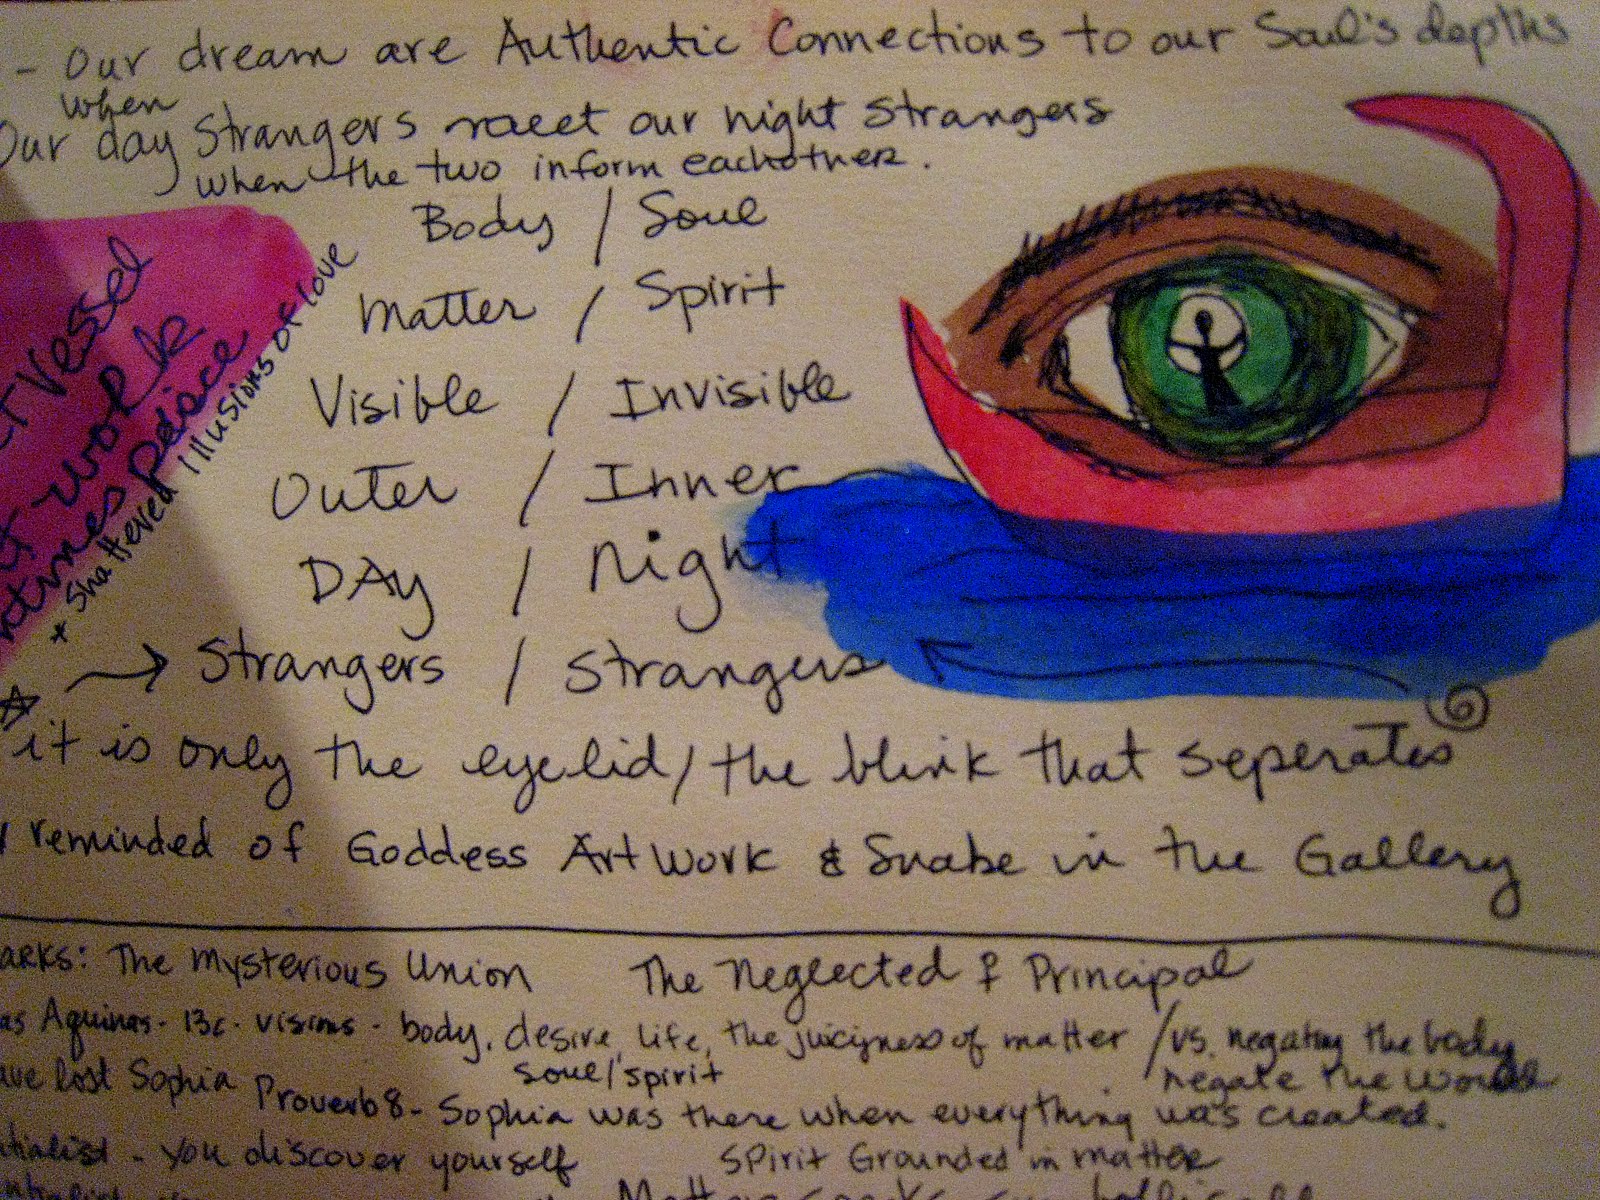 - Our dream are Authentic Connections to our Soul's depths
when
Our day strangers meet our night strangers
when the two inform eachother.
Body / Soul
Matter / Spirit
Visible / Invisible
Outer / Inner
DAy / Night
→ Strangers / Strangers
it is only the eyelid / the blink that seperates
reminded of Goddess Art Work & Snake in the Gallery
Vessel
work
* Shattered illusions of love
The Mysterious Union The Neglected ♀ Principal
Aquinas - 13c. visions - body, desire, life, the juicyness of matter / vs. negating the body
soul/spirit negate the World
lost Sophia Proverb 8 - Sophia was there when everything was created.
- you discover yourself Spirit Grounded in matter